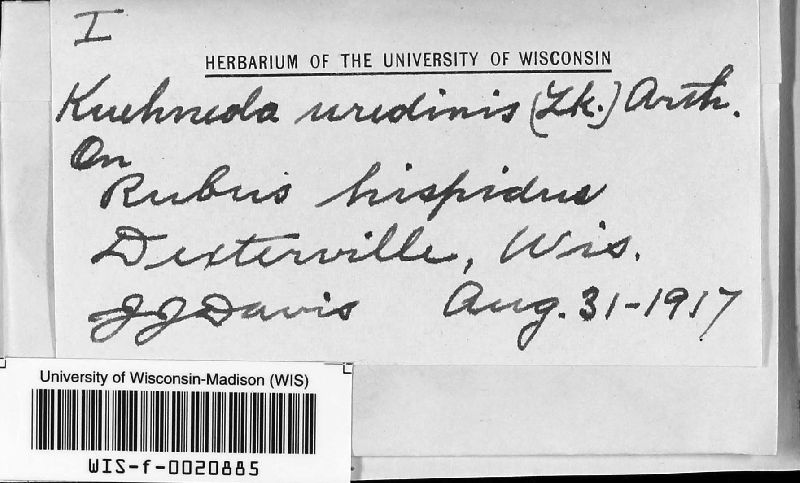 I
HERBARIUM OF THE UNIVERSITY OF WISCONSIN
Kuehneola uredinis (Lk.) Arth.
On
Rubus hispidus
Dexterville, Wis.
JJ Davis Aug. 31-1917
University of Wisconsin-Madison (WIS)
WIS-f-0020885